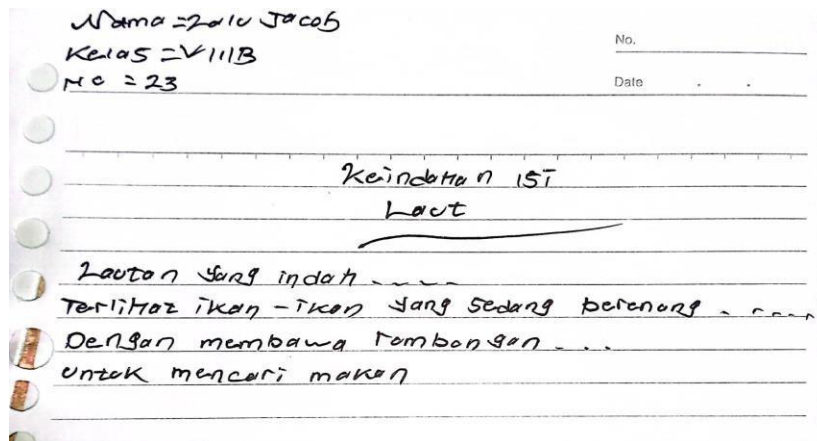 Nama = Lalu Jacob
Kelas = VIIIB
No = 23
No.
Date
Keindahan ISI
Laut
Lautan yang indah ....
Terlihat ikan-ikan yang sedang berenang .....
Dengan membawa rombongan ...
untuk mencari makan